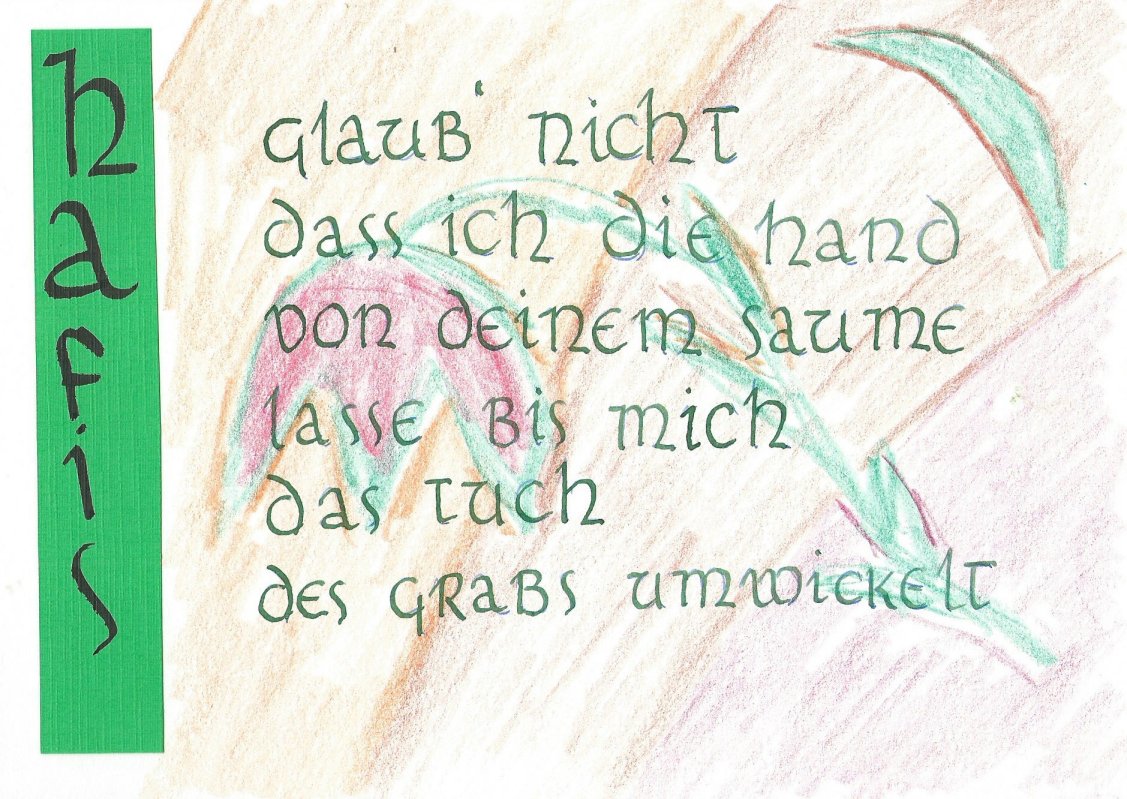 hafis
glaub' nicht
dass ich die hand
von deinem saume
lasse bis mich
das tuch
des grabs umwickelt